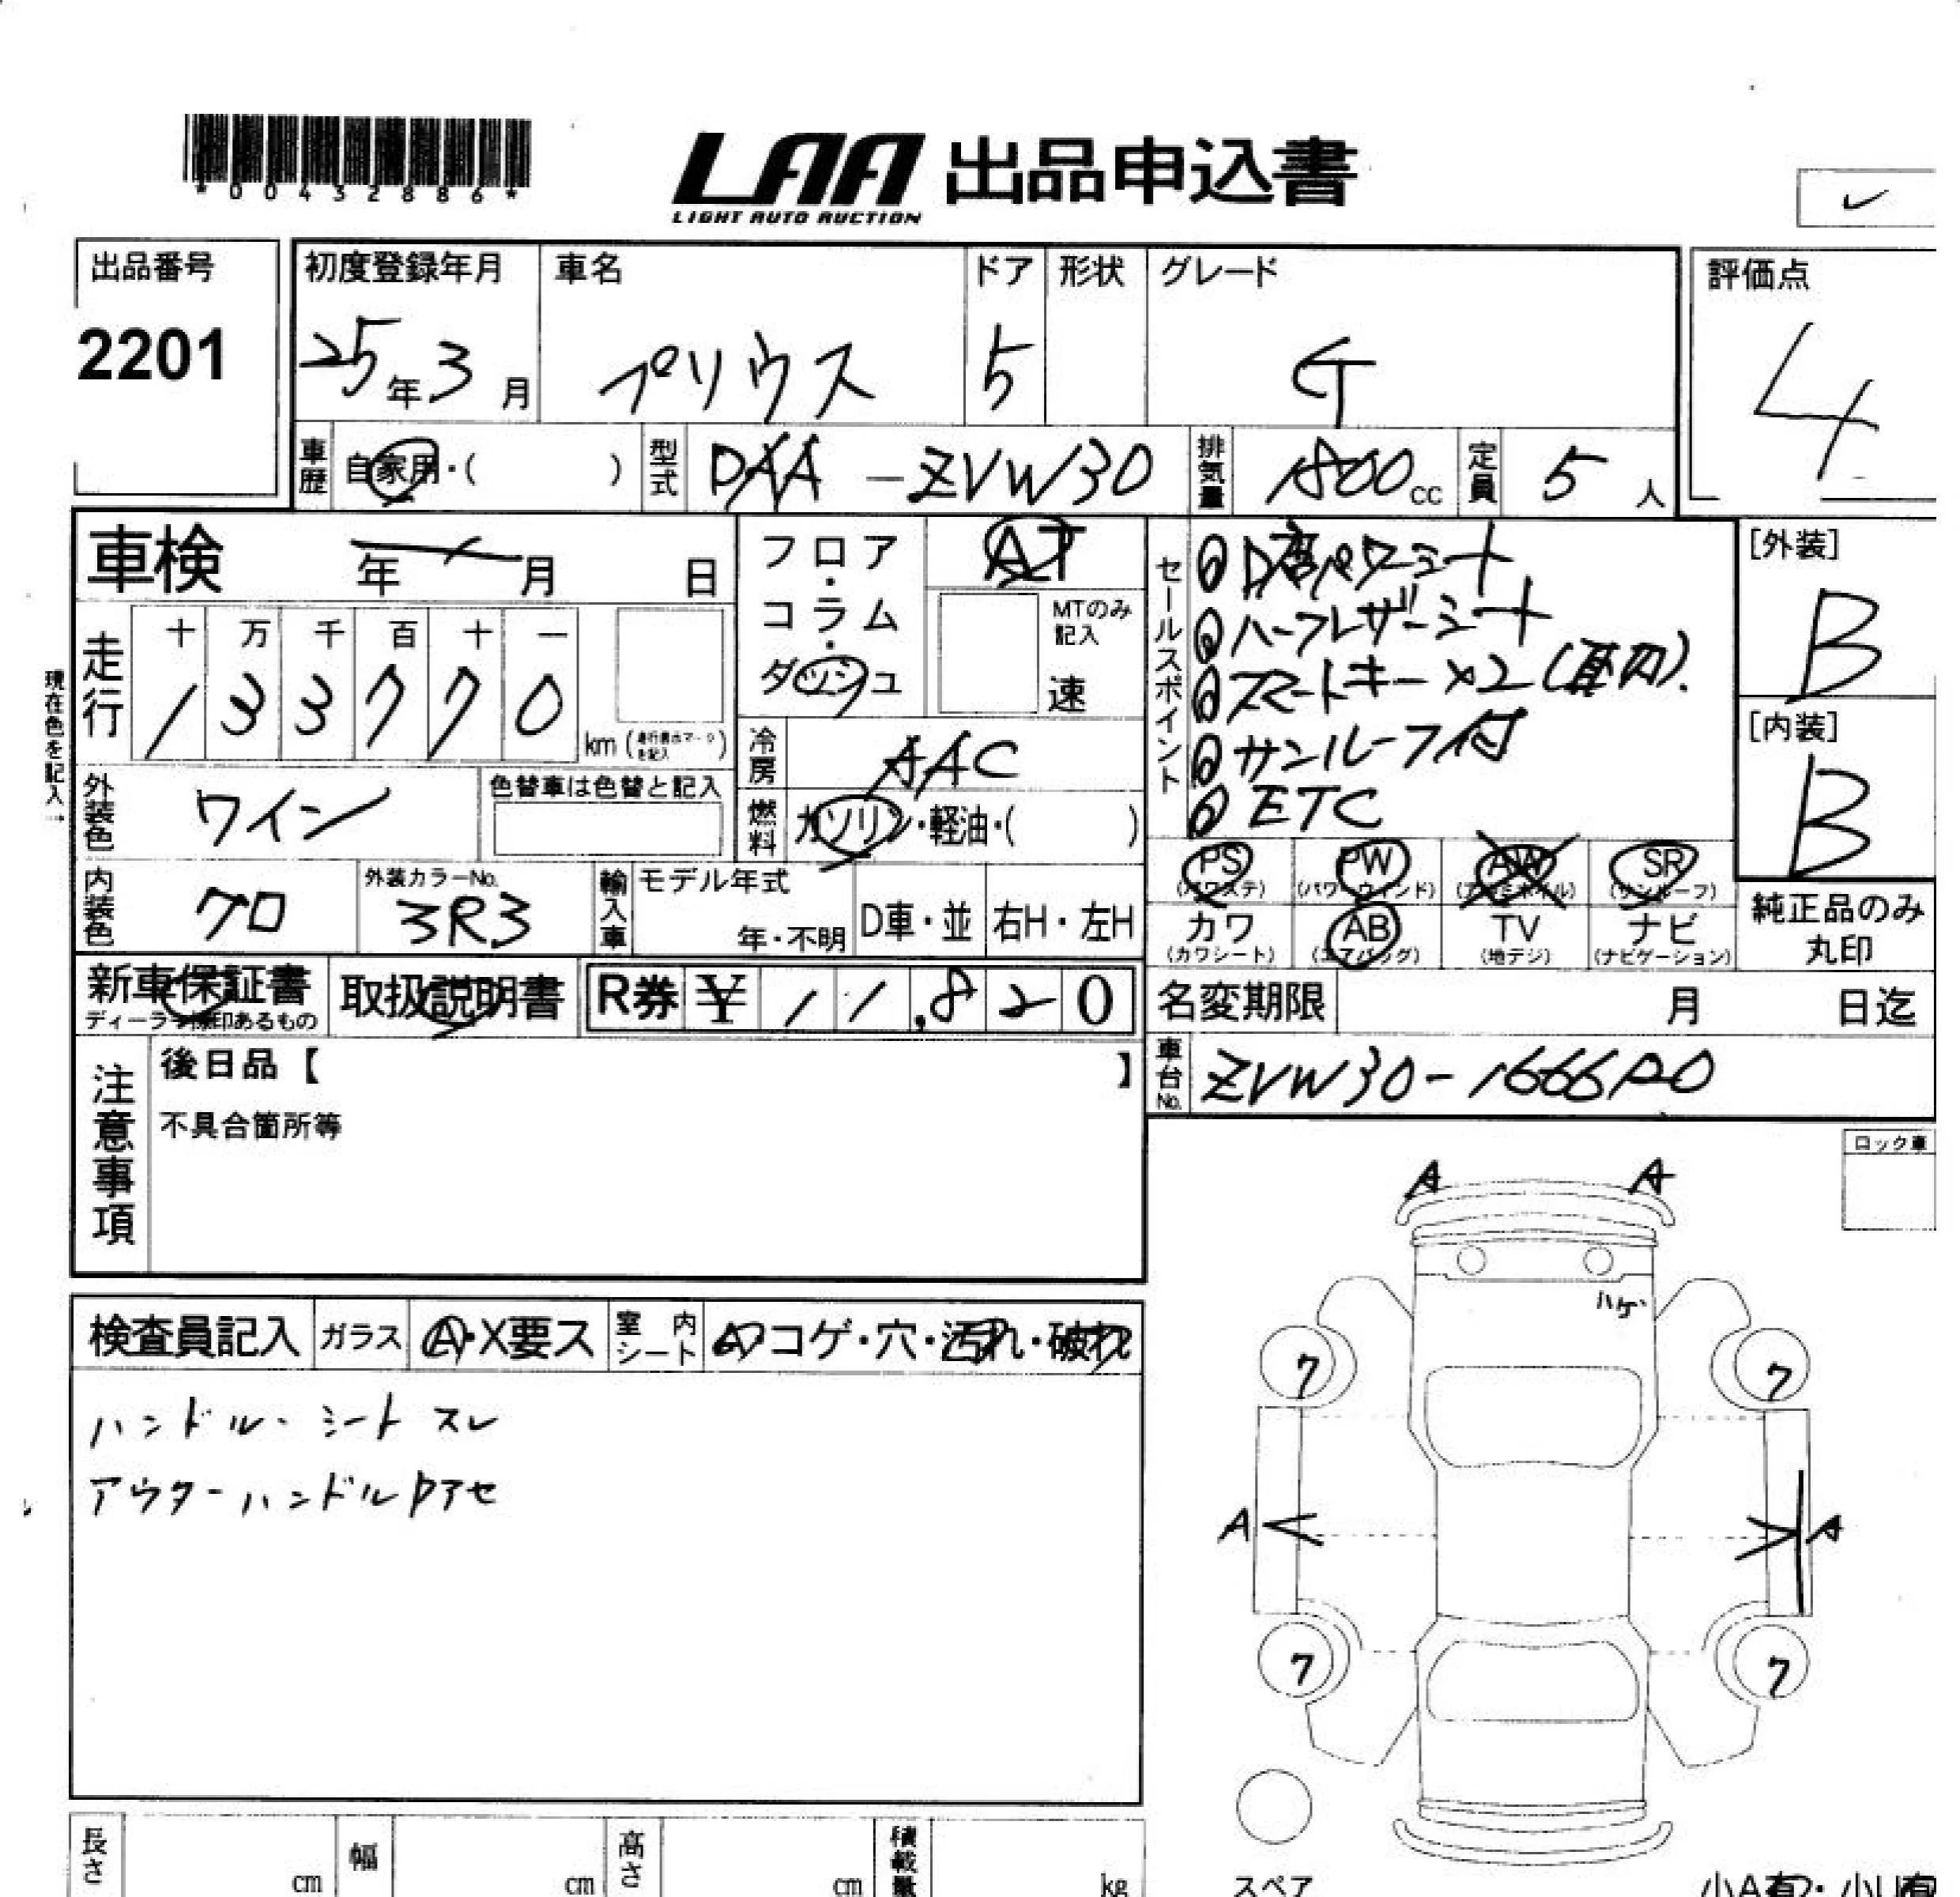 *00432886*
LAA 出品申込書
LIGHT AUTO AUCTION
出品番号
2201
初度登録年月
25年3月
車名
プリウス
ドア
5
形状
グレード
G
評価点
4
車歴
自家用・( )
型式
DAA-ZVW30
排気量
1800cc
定員
5人
車検
年 月 日
フロア・コラム・ダッシュ
AT
MTのみ記入
速
セールスポイント
D席パワーシート
ハーフレザーシート
スマートキー×2
サンルーフ付
ETC
[外装]
B
[内装]
B
現在色を記入→
走行
十 万 千 百 十 一
1 3 3 7 7 0
km
冷房
AAC
外装色
ワイン
色替車は色替と記入
燃料
ガソリン・軽油・( )
内装色
クロ
外装カラーNo.
3R3
輸入車
モデル年式
年・不明
D車・並
右H・左H
PS
(パワステ)
PW
(パワーウィンド)
AW
(アルミホイル)
SR
(サンルーフ)
カワ
(カワシート)
AB
(エアバッグ)
TV
(地デジ)
ナビ
(ナビゲーション)
純正品のみ
丸印
新車保証書
取扱説明書
R券 ¥ 11,820
名変期限
月 日迄
注意事項
後日品【 】
不具合箇所等
車台No.
ロック車
A A
ハゲ
検査員記入
ガラス
A・X要ス
室内シート
コゲ・穴・汚れ・破れ
ハンドル・シート スレ
アウターハンドル
7 7
A A
7 7
長さ
cm
幅
cm
高さ
cm
積載量
kg
スペア